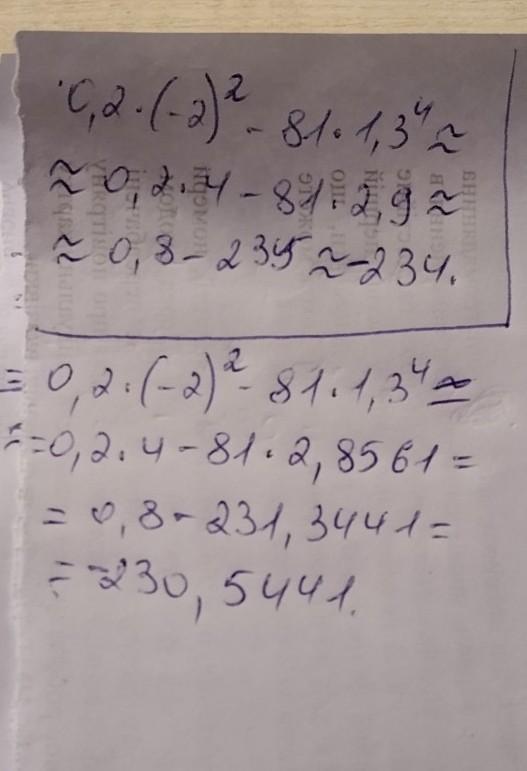 0,2·(-2)² - 81·1,3⁴ ≈
≈ 0,2·4 - 81·2,9 ≈
≈ 0,8 - 235 ≈ -234.
= 0,2·(-2)² - 81·1,3⁴ =
= 0,2·4 - 81·2,8561 =
= 0,8 - 231,3441 =
= -230,5441.